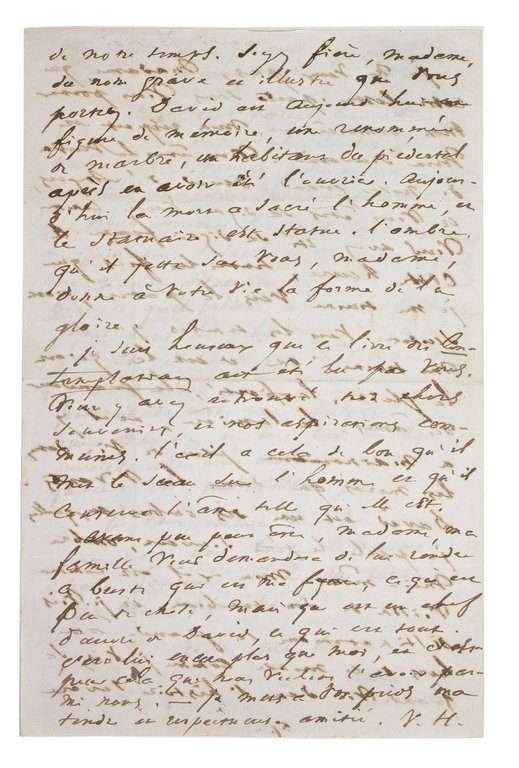 de notre temps. Soyez fière, madame,
du nom grave et illustre que vous
portez. David est aujourd'hui une
figure de mémoire, une renommée
de marbre, un habitant du piédestal
après en avoir été l'ouvrier. Aujour-
d'hui la mort a sacré l'homme, et
le statuaire est statue. L'ombre
qu'il jette sur vous, madame,
donne à votre vie la forme de la
gloire.
Je suis heureux que ce livre des Con-
templations ait été lu par vous.
Vous y avez retrouvé nos chers
souvenirs et nos aspirations com-
munes. L'exil a cela de bon qu'il
met le sceau sur l'homme et qu'il
conserve l'âme telle qu'elle est.
Avant peu peut-être, madame, ma
famille vous demandera de lui rendre
ce buste qui est ma figure, ce qui est
peu de chose, mais qui est un chef
d'œuvre de David, ce qui est tout.
C'est lui encore plus que moi, et c'est
pour cela que nous voulons l'avoir par-
mi nous. — Je mets à vos pieds ma
tendre et respectueuse amitié. V. H.